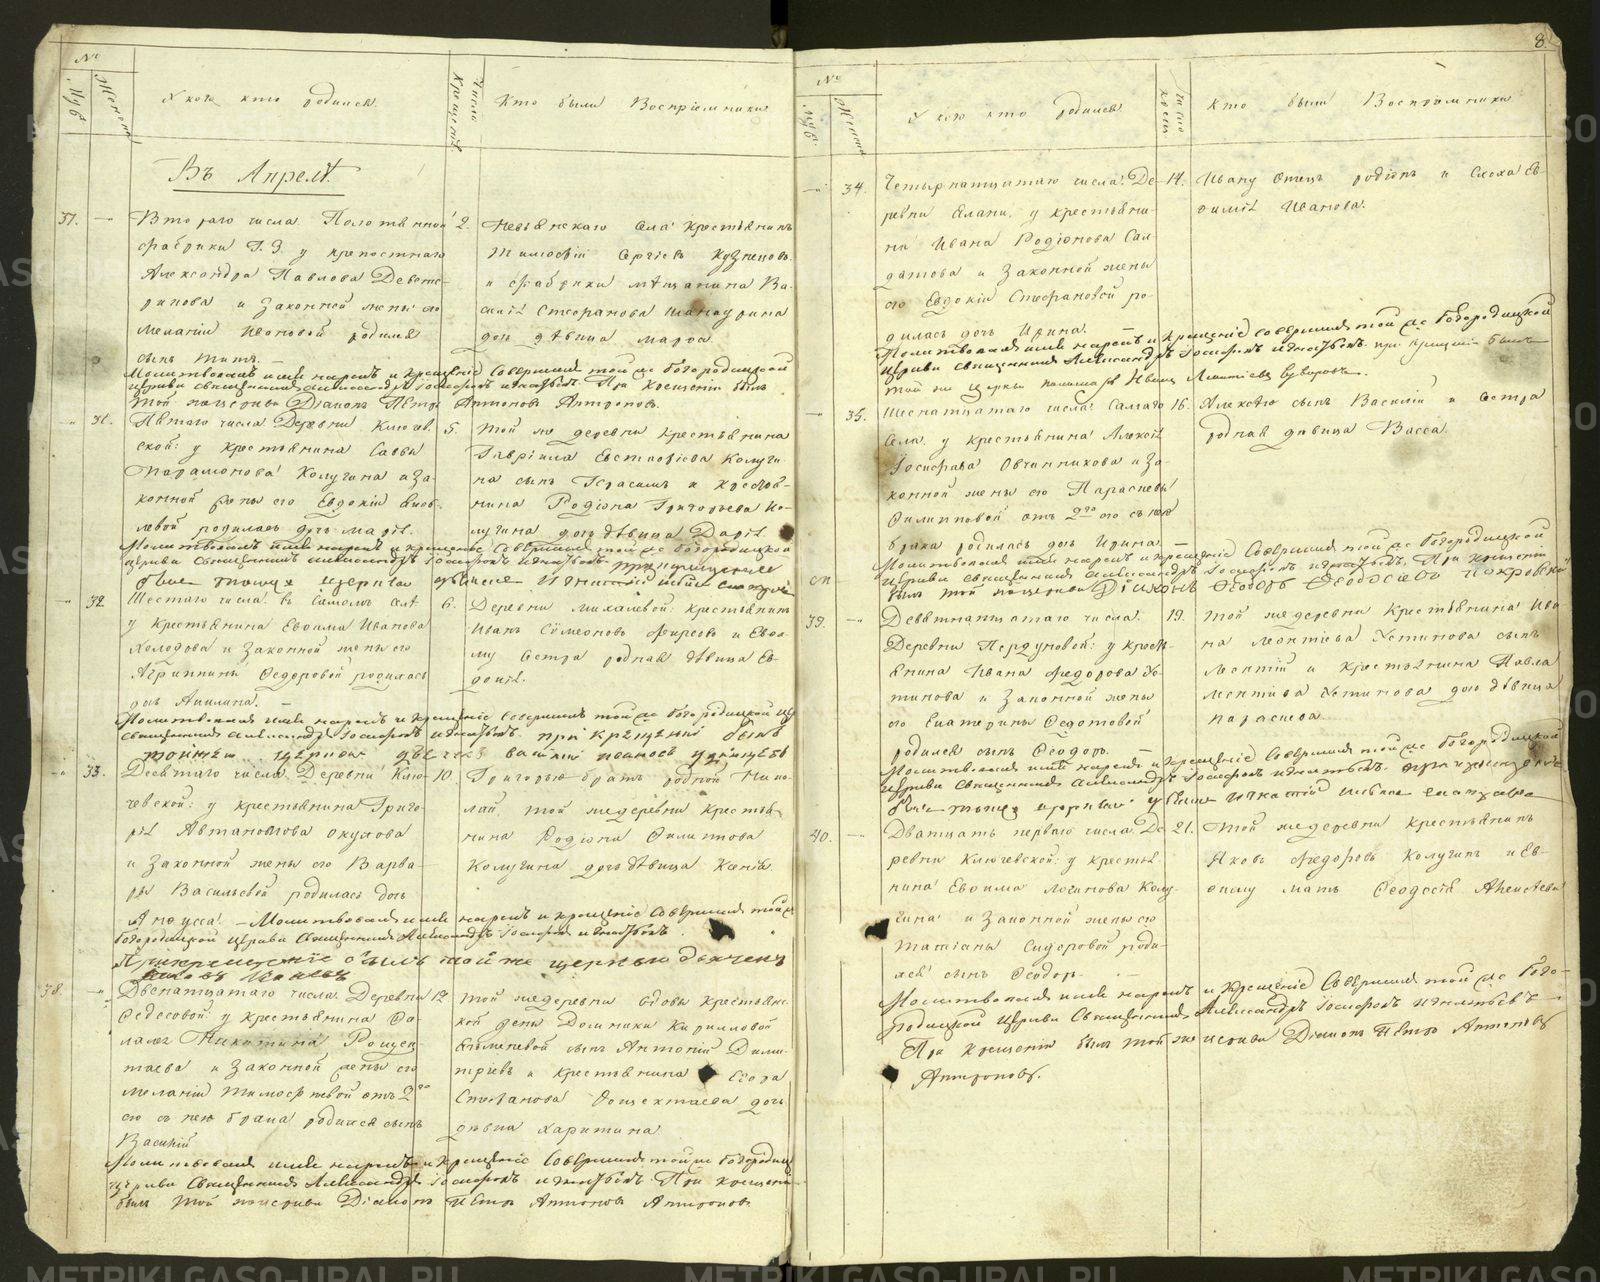 8.
№
Муж.
Женска
У кого кто родился.
Число Крещенія.
Кто были Воспріемники
Въ Апрелѣ.
37.
Втораго числа Полотняной
фабрики Г. З. у крепостнаго
Александра Павлова
и законной жены его
Меланіи родился
сынъ Титъ.
2.
Невьянскаго села крестьянинъ
Тимофей Сергіевъ Кузнецовъ
и фабрики мѣщанина Ва-
силія Стефанова
дочь дѣвица Марѳа.
Молитвовалъ имя нарекъ и крещеніе совершилъ той же Богородицкой
Церкви Священникъ Александръ Іосифовъ Игнатьевъ. При крещеніи былъ
той же церкви Діаконъ Петръ Антоновъ Антроповъ.
31.
Пятаго числа Деревни Ключев-
ской: у крестьянина Саввы
Парамонова Колугина и за-
конной жены его Евдокіи
родилась дочь Марія.
5.
Той же деревни крестьянина
Гавріила Евстафіева Колуги-
на сынъ Герасимъ и крестья-
нина Родіона Григорьева Ко-
лугина дочь дѣвица Дарія
Молитвовалъ имя нарекъ и крещеніе совершилъ той же Богородицкой
Церкви Священникъ Александръ Іосифовъ Игнатьевъ. При крещеніи
32.
Шестаго числа въ Самомъ селѣ
у крестьянина Евфима Иванова
Холодова и законной жены его
Агрипины Ѳедоровой родилась
дочь Акилина.
6.
Деревни Михалевой: крестьянинъ
Иванъ Сѵмеоновъ Фирсовъ и Евфи-
му сестра родная дѣвица Ев-
докія.
Молитвовалъ имя нарекъ и крещеніе совершилъ той же Богородицкой Цер
Священникъ Александръ Іосифовъ Игнатьевъ. при крещеніи былъ
33.
Десятаго числа Деревни Клю-
чевской: у крестьянина Григо-
рья Автаномова Окулова
и законной жены его Варва-
ры Васильевой родилась дочь
Анфуса.
10.
Григорью братъ родной Нико-
лай, той же деревни крестья-
нина Родіона Филипова
Колугина дочь дѣвица Ксенія.
Молитвовалъ имя нарекъ и крещеніе совершилъ той же
Богородицкой Церкви Священникъ Александръ Іосифовъ Игнатьевъ.
При крещеніе былъ той же церкви дьячекъ
38.
Двенатцатаго числа Деревни
Ѳедосовой: у крестьянина Фа-
лалея Никитина
и законной жены его
Меланіи Тимофеевой отъ 2го
его съ нею брака родился сынъ
Василій
12.
Той же деревни вдовы крестьянс-
кой жены Домники Кирилловой
сынъ Антоній Дими-
тріевъ и крестьянина Егора
Стефанова дочь
дѣвка Харитина.
Молитвовалъ имя нарекъ и крещеніе совершилъ той же Богородицк
Церкви Священникъ Александръ Іосифовъ Игнатьевъ. При крещеніи
былъ той же церкви Діаконъ Петръ Антоновъ Антроповъ.
№
Муж.
Женска
У кого кто родился.
Число крещ.
Кто были Воспріемники
34.
Четырнатцатаго числа: Де-
ревни Елани, у крестьяни-
на Ивана Родіонова Сал-
датова и законной жены
его Евдокіи Стефановой ро-
дилась дочь Ирина.
14.
Ивану отецъ Родіонъ и сноха Ев-
фимія Иванова.
Молитвовалъ имя нарекъ и крещеніе совершилъ той же Богородицкой
Церкви Священникъ Александръ Іосифовъ Игнатьевъ. при крещеніи былъ
той же церкви пономарь Иванъ Леонтіевъ Суворовъ.
35.
Шеснатцатаго числа Самаго
села, у крестьянина Алексѣя
Іосифова Овчинникова и за-
конной жены его Парасковьи
Филипповой отъ 2го его съ нею
брака родилась дочь Ирина.
16.
Алексѣю сынъ Василій и сестра
родная дѣвица Васса.
Молитвовалъ имя нарекъ и крещеніе совершилъ той же Богородицкой
Церкви Священникъ Александръ Іосифовъ Игнатьевъ. При крещеніи
былъ той же церкви Дьяконъ Ѳеодоръ Ѳеодосіевъ Покровскій
39.
Девятнатцатаго числа:
Деревни Пердуновой: у кресть-
янина Ивана Федорова Ус-
тинова и законной жены
его Екатерины Ѳедотовой
родился сынъ Ѳеодоръ.
19.
Той же деревни крестьянина Ива-
на Леонтіева Устинова сынъ
Леонтій и крестьянина Павла
Леонтіева Устинова дочь дѣвица
Параскева.
Молитвовалъ имя нарекъ и крещеніе совершилъ той же Богородицкой
Церкви Священникъ Александръ Іосифовъ Игнатьевъ.
40.
Дватцать перваго числа: Де-
ревни Ключевской: у крестья-
нина Евфима Логинова Колу-
гина и законной жены его
Татіаны Сидоровой роди-
лся сынъ Ѳеодор.
21.
Той же деревни крестьянинъ
Яковъ Федоровъ Колугинъ и Ев-
фиму мать Ѳеодосія Алексѣева
Молитвовалъ имя нарекъ и крещеніе совершилъ той же Бого-
родицкой Церкви Священникъ Александръ Іосифовъ Игнатьевъ
При крещеніи былъ той же церкви Діаконъ Петръ Антоновъ
Антроповъ.
METRIKI.GASO-URAL.RU